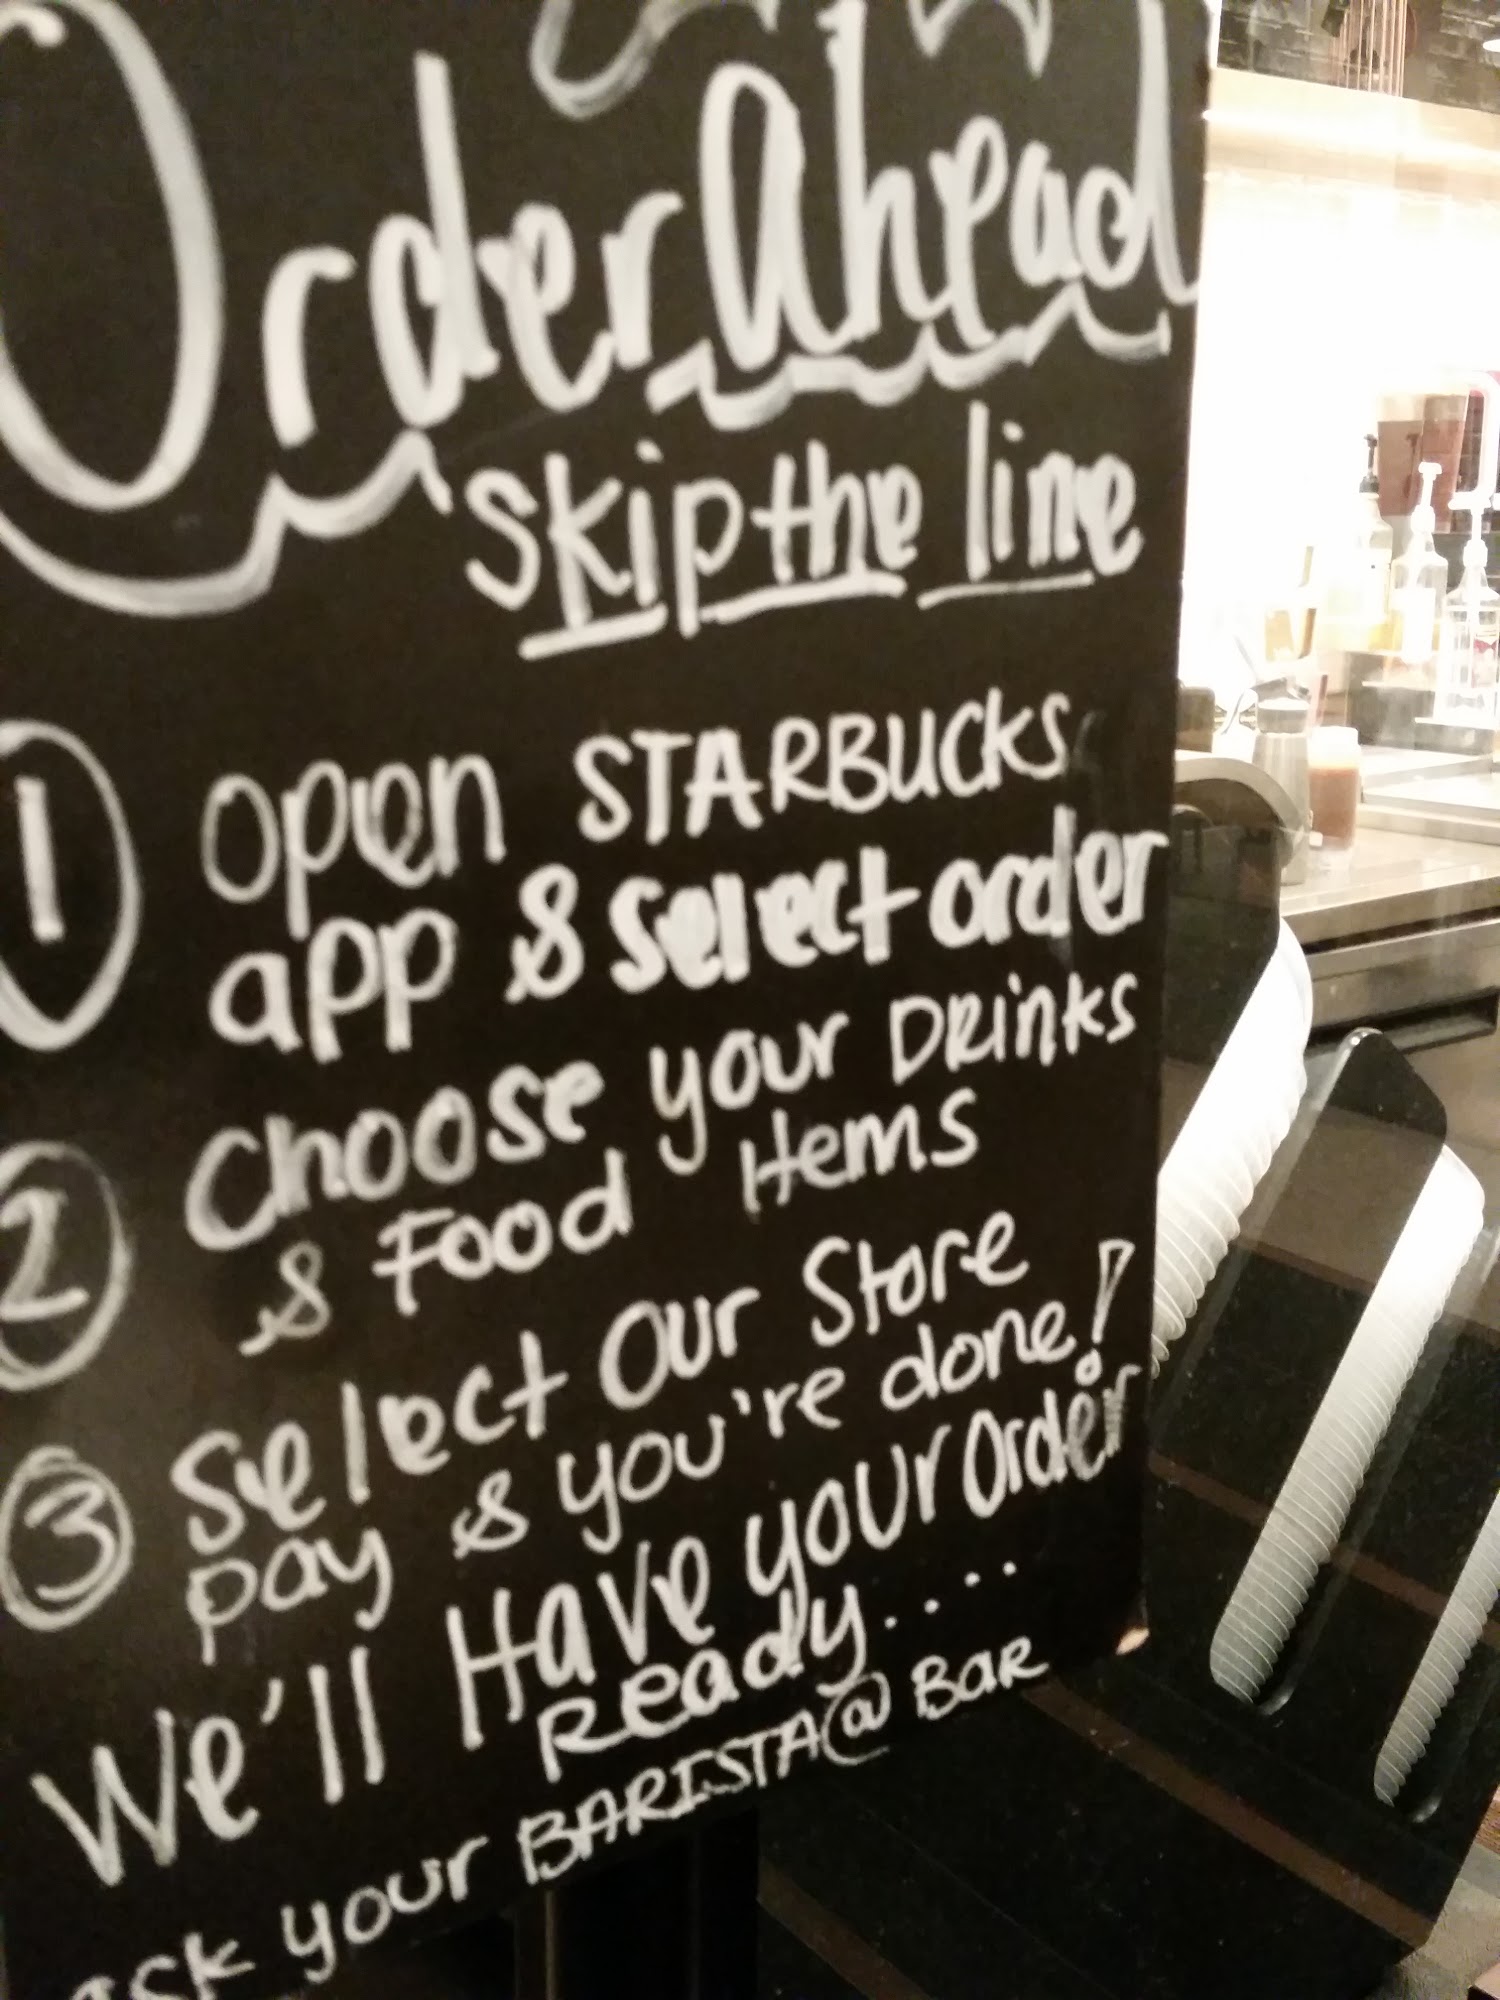 Order Ahead
Skip the line
1 open STARBUCKS
app & select order
2 choose your DRinks
& Food Items
3 Select our Store
pay & you're done!
We'll Have your order
Ready....
Ask your BARISTA @ BaR